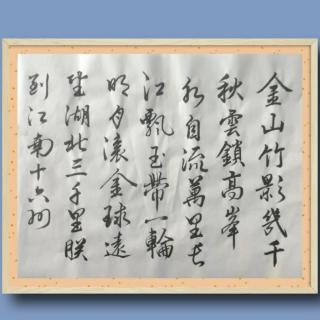 金山竹影幾千
秋雲鎖高峯
水自流萬里長
江飄玉帶一輪
明月滾金球遠
望湖北三千里朕
到江南十六州